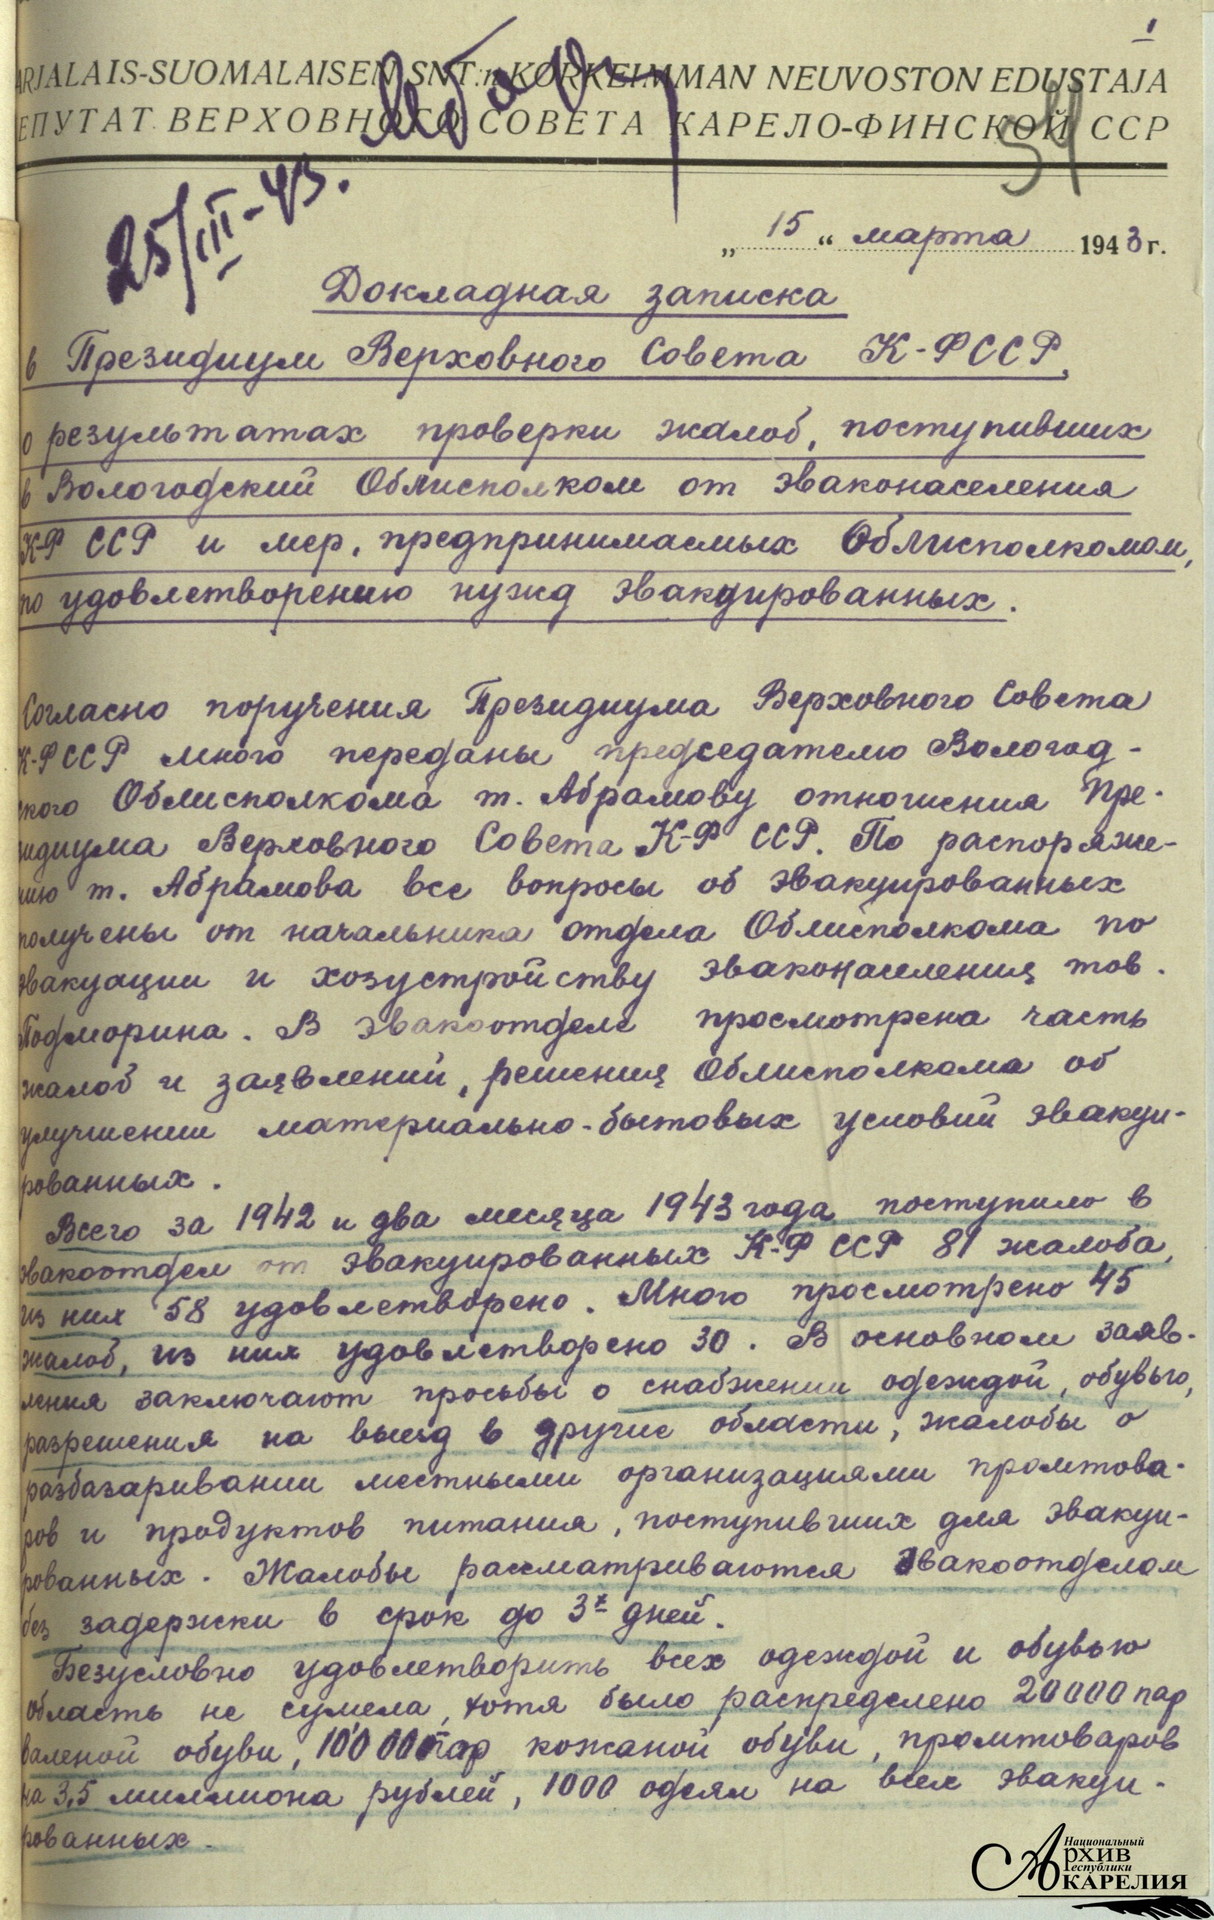 1
ARJALAIS-SUOMALAISEN SNT:n KORKEIMMAN NEUVOSTON EDUSTAJA
ЕПУТАТ ВЕРХОВНОГО СОВЕТА КАРЕЛО-ФИНСКОЙ ССР
54
25/III-43.
„ 15 “ марта 1943 г.
Докладная записка
в Президиум Верховного Совета К-ФССР,
о результатах проверки жалоб, поступивших
в Вологодский Облисполком от эваконаселения
К-Ф ССР и мер, предпринимаемых Облисполкомом,
по удовлетворению нужд эвакуированных.
Согласно поручения Президиума Верховного Совета
К-ФССР мною переданы председателю Вологод-
ского Облисполкома т. Абрамову отношения Пре-
зидиума Верховного Совета К-Ф ССР. По распоряже-
нию т. Абрамова все вопросы об эвакуированных
получены от начальника отдела Облисполкома по
эвакуации и хозустройству эваконаселения тов.
Подморина. В эвакоотделе просмотрена часть
жалоб и заявлений, решения Облисполкома об
улучшении материально-бытовых условий эвакуи-
рованных.
Всего за 1942 и два месяца 1943 года поступило в
эвакоотдел от эвакуированных К-Ф ССР 81 жалоба,
из них 58 удовлетворено. Мною просмотрено 45
жалоб, из них удовлетворено 30. В основном заяв-
ления заключают просьбы о снабжении одеждой, обувью,
разрешения на выезд в другие области, жалобы о
разбазаривании местными организациями промтова-
ров и продуктов питания, поступивших для эвакуи-
рованных. Жалобы рассматриваются эвакоотделом
без задержки в срок до 3х дней.
Безусловно удовлетворить всех одеждой и обувью
область не сумела, хотя было распределено 20000 пар
валеной обуви, 10000 пар кожаной обуви, промтоваров
на 3,5 миллиона рублей, 1000 одеял на всех эвакуи-
рованных.
Национальный
Архив
Республики
Карелия